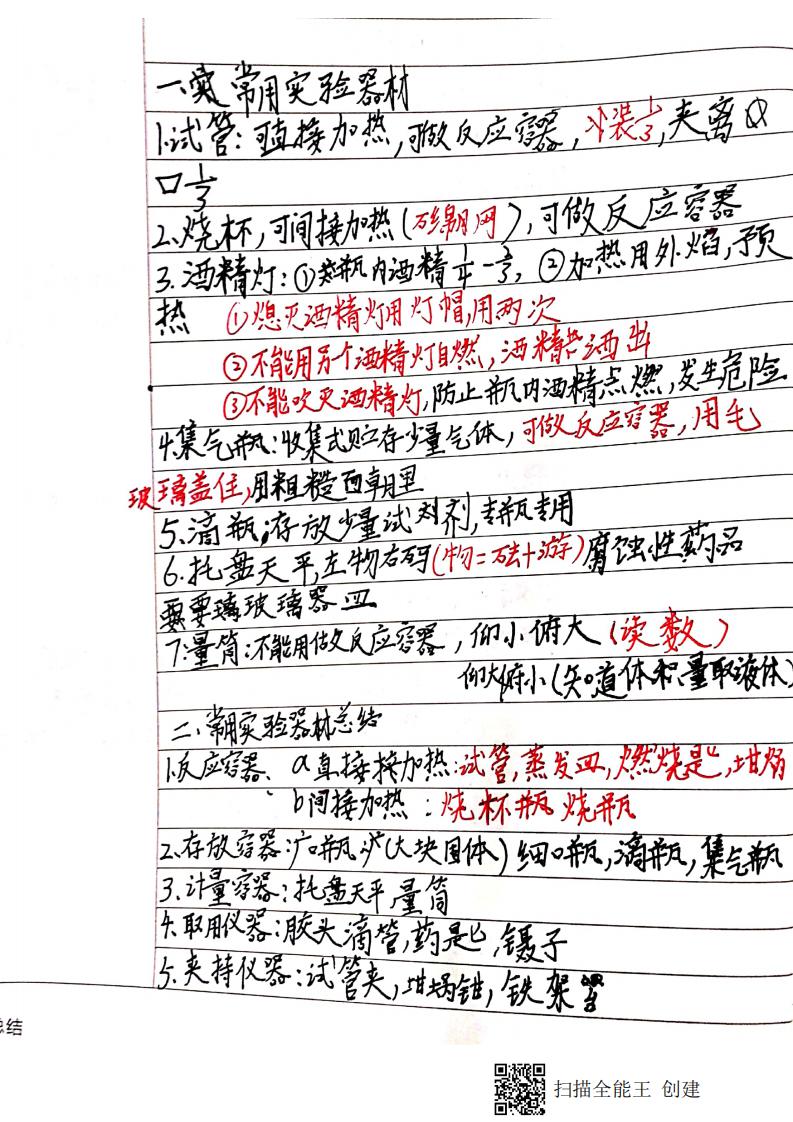 一、常用实验器材
1.试管：可直接加热，可做反应容器，小装1/3，夹离
口1/3
2、烧杯，可间接加热（石绵网），可做反应容器
3.酒精灯：①瓶内酒精1/4-2/3，②加热用外焰，预
热 ①熄灭酒精灯用灯帽，用两次
②不能用另个酒精灯自燃，酒精洒出
③不能吹灭酒精灯，防止瓶内酒精点燃，发生危险
4.集气瓶：收集式贮存少量气体，可做反应容器，用毛
玻璃盖住，用粗糙面朝里
5.滴瓶，存放少量试剂，专瓶专用
6.托盘天平，左物右码（物=砝+游）腐蚀性药品
要玻璃器皿
7.量筒：不能用做反应容器，仰小俯大（读数）
仰大俯小（知道体积量取液体）
二、常用实验器材总结
1.反应容器、a直接接加热：试管，蒸发皿，燃烧匙，坩埚
b间接加热：烧杯瓶 烧瓶
2.存放容器：广口瓶（大块固体）细口瓶，滴瓶，集气瓶
3.计量容器：托盘天平，量筒
4.取用仪器：胶头滴管，药匙，镊子
5.夹持仪器：试管夹，坩埚钳，铁架台
总结
扫描全能王 创建